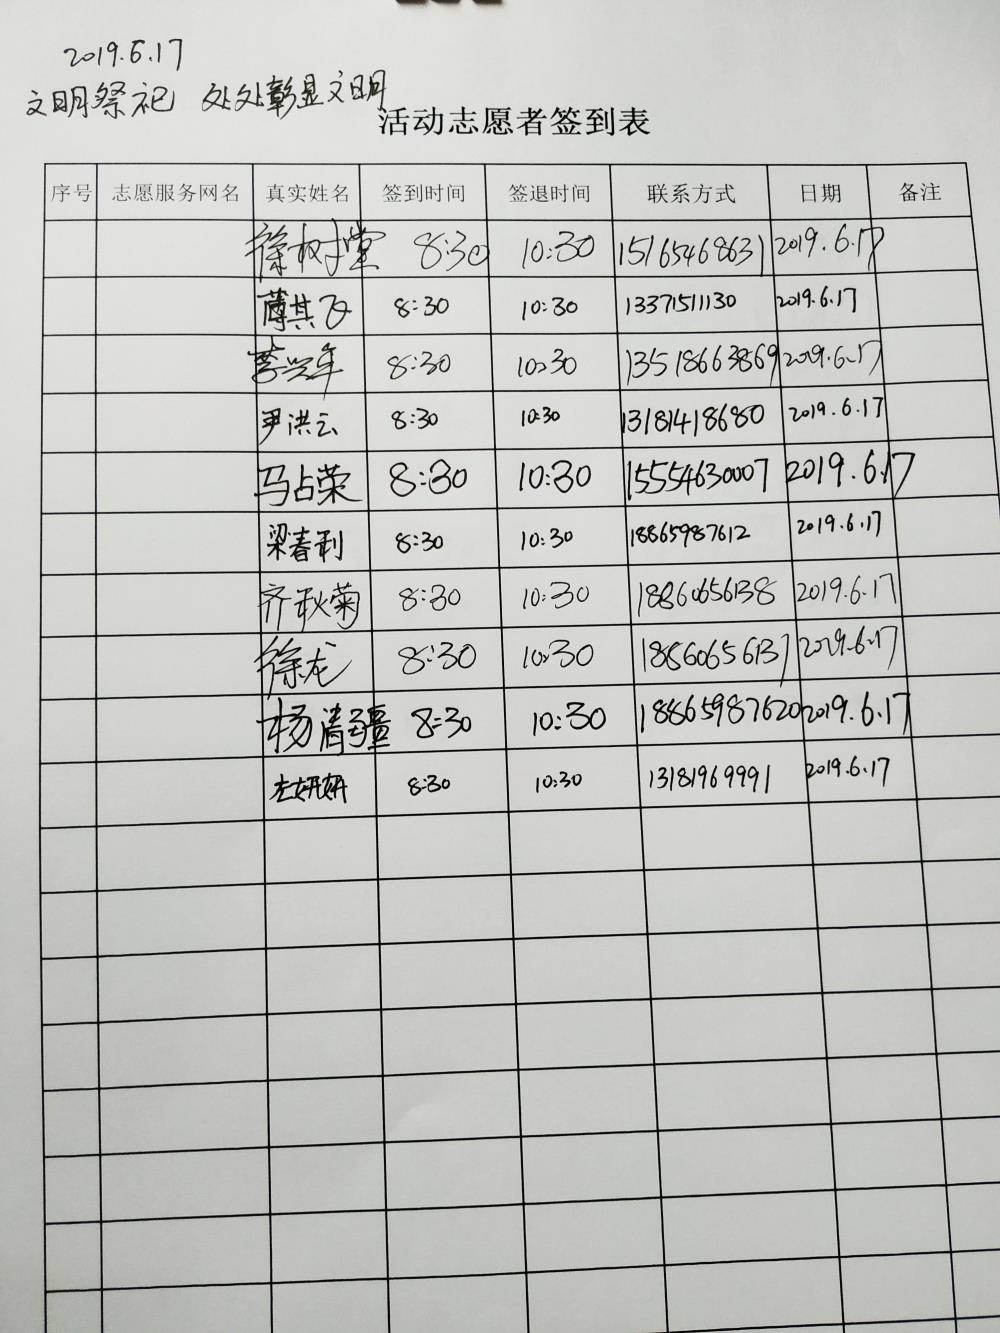 2019.6.17
文明祭祀 处处彰显文明
活动志愿者签到表
序号 志愿服务网名 真实姓名 签到时间 签退时间 联系方式 日期 备注
徐树堂 8:30 10:30 15165468631 2019.6.17
薄其飞 8:30 10:30 13371511130 2019.6.17
李兴年 8:30 10:30 13518663869 2019.6.17
尹洪云 8:30 10:30 13181418680 2019.6.17
马占荣 8:30 10:30 15554630007 2019.6.17
梁春利 8:30 10:30 18865987612 2019.6.17
齐秋菊 8:30 10:30 18860656138 2019.6.17
徐龙 8:30 10:30 18660656137 2019.6.17
杨清疆 8:30 10:30 18865987620 2019.6.17
左妍妍 8:30 10:30 13181969991 2019.6.17